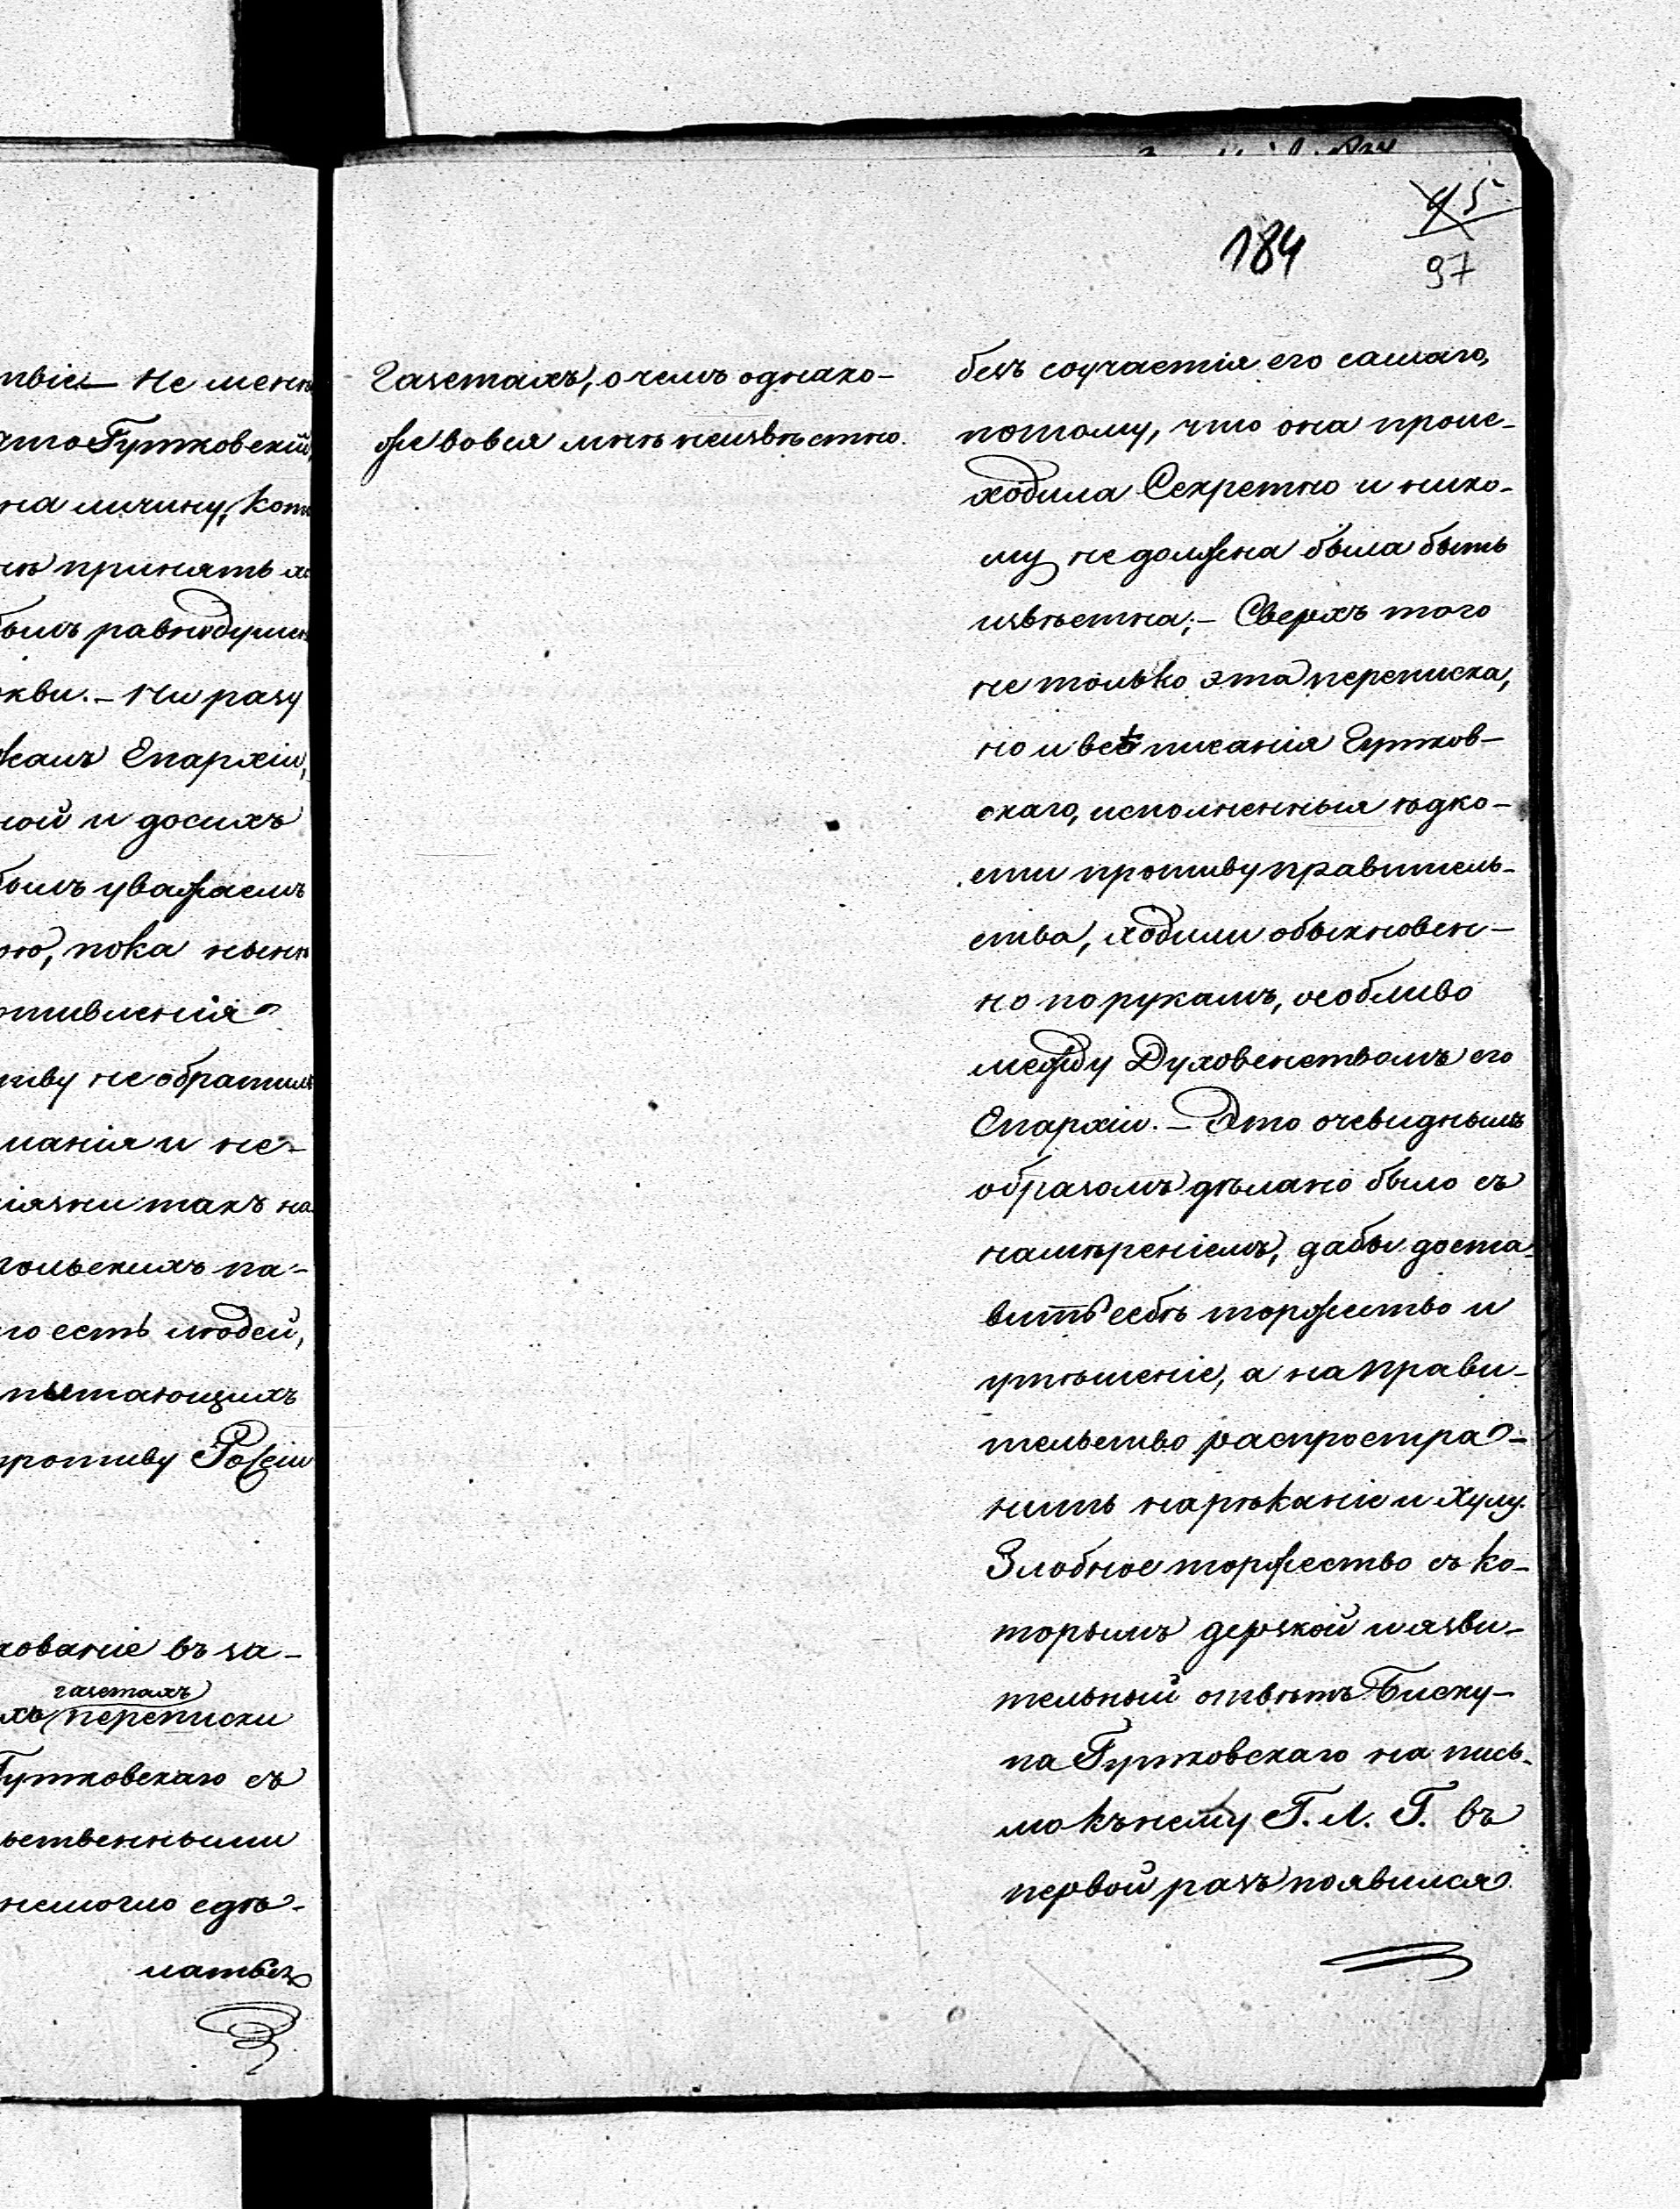 45
184
97
твіе — Не мене
что Гутковскій,
на личину, кот
нѣ принять
былъ равнодуше
кви. — Ни разу
жалъ Епархіи,
ной и досихъ
былъ уважаемъ
ою, пока нынѣ
отивленія
тиву не обратил
манія и не-
іязни такъ на
польскихъ па-
то есть людей,
питающихъ
противу Россіи
кованіе въ за-
газетахъ
хъ переписки
Гутковскаго съ
ьственными
немогло сдѣ-
латьсѧ
Газетахъ, о чемъ однако-
же вовся мнѣ неизвѣстно.
безъ соучастія его самаго,
потому, что она проис-
ходила Секретно и нико-
му не должна была быть
извѣстна; — Сверхъ того
не только эта переписка,
но и всѣ писанія Гутков-
скаго, исполненныя ѣдко-
сти противу правитель-
ства, ходили обыкновен-
но по рукамъ, особливо
между Духовенствомъ его
Епархіи. — Это очевиднымъ
образомъ дѣлано было съ
намѣреніемъ, дабы доста-
вить себѣ торжество и
утѣшеніе, а на прави-
тельство распростра-
нить нарѣканіе и хулу.
Злобное торжество съ ко-
торымъ дерзкой и язви-
тельный отвѣтъ Биску-
па Гутковскаго на пись-
мо къ нему Г. Л. Г. въ
первой разъ появился